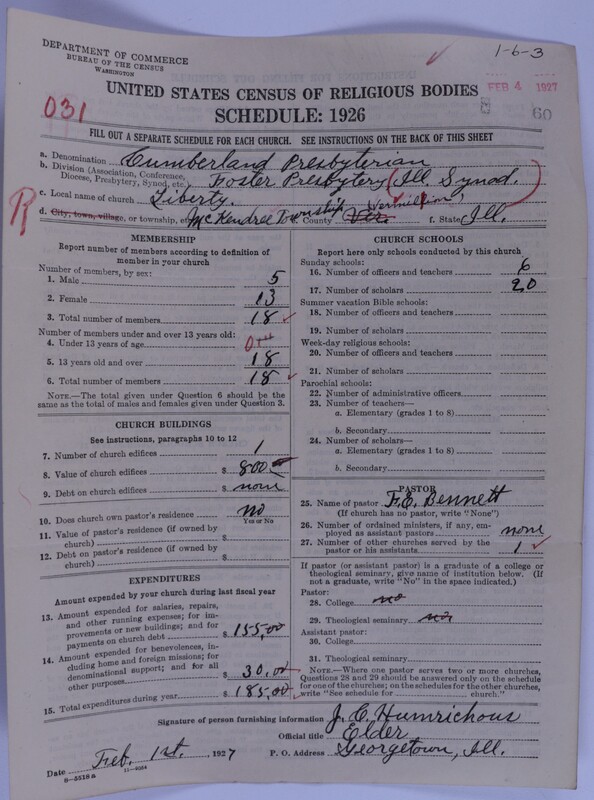 DEPARTMENT OF COMMERCE
BUREAU OF THE CENSUS
WASHINGTON
1-6-3
FEB 4 1927
60
031
UNITED STATES CENSUS OF RELIGIOUS BODIES
SCHEDULE: 1926
FILL OUT A SEPARATE SCHEDULE FOR EACH CHURCH. SEE INSTRUCTIONS ON THE BACK OF THIS SHEET
a. Denomination Cumberland Presbyterian
b. Division (Association, Conference, Diocese, Presbytery, Synod, etc. Foster Presbytery (Ill. Synod.)
c. Local name of church Liberty.
R
d. City, town, village, or township, etc. McKendree Township County Ver. Vermillion f. State Ill.
MEMBERSHIP
Report number of members according to definition of
member in your church
Number of members, by sex:
1. Male 5
2. Female 13
3. Total number of members 18
Number of members under and over 13 years old:
4. Under 13 years of age
5. 13 years old and over 18
6. Total number of members 18
NOTE.—The total given under Question 6 should be the
same as the total of males and females given under Question 3.
CHURCH BUILDINGS
See instructions, paragraphs 10 to 12
7. Number of church edifices 1
8. Value of church edifices $ 800
9. Debt on church edifices $ none
10. Does church own pastor's residence no
Yes or No
11. Value of pastor's residence (if owned by
church) $
12. Debt on pastor's residence (if owned by
church) $
EXPENDITURES
Amount expended by your church during last fiscal year
13. Amount expended for salaries, repairs,
and other running expenses; for im-
provements or new buildings; and for
payments on church debt $ 155,00
14. Amount expended for benevolences, in-
cluding home and foreign missions; for
denominational support; and for all
other purposes $ 30,00
15. Total expenditures during year $ 185,00
CHURCH SCHOOLS
Report here only schools conducted by this church
Sunday schools:
16. Number of officers and teachers 6
17. Number of scholars 20
Summer vacation Bible schools:
18. Number of officers and teachers
19. Number of scholars
Week-day religious schools:
20. Number of officers and teachers
21. Number of scholars
Parochial schools:
22. Number of administrative officers
23. Number of teachers—
a. Elementary (grades 1 to 8)
b. Secondary
24. Number of scholars—
a. Elementary (grades 1 to 8)
b. Secondary
PASTOR
25. Name of pastor F. E. Bennett
(If church has no pastor, write "None")
26. Number of ordained ministers, if any, em-
ployed as assistant pastors none
27. Number of other churches served by the
pastor or his assistants 1
If pastor (or assistant pastor) is a graduate of a college or
theological seminary, give name of institution below. (If
not a graduate, write "No" in the space indicated.)
Pastor:
28. College no
29. Theological seminary no
Assistant pastor:
30. College
31. Theological seminary
NOTE.—Where one pastor serves two or more churches,
Questions 28 and 29 should be answered only on the schedule
for one of the churches; on the schedules for the other churches,
write "See schedule for church."
Signature of person furnishing information J. C. Humrichous
Official title Elder
P. O. Address Georgetown, Ill.
Date Feb. 1st. 1927
8-5318a 11-9364